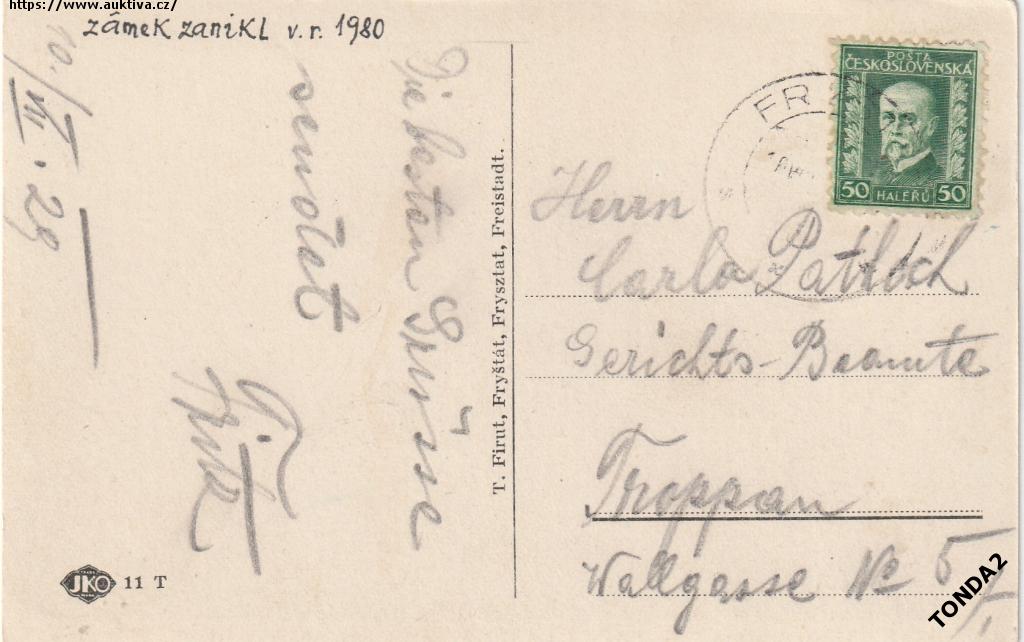 https://www.auktiva.cz/
zámek zanikl v.r. 1980
10./VII. 29
Die besten Grüsse
sendet
Fritz
T. Firut, Fryštát, Frysztat, Freistadt.
JKO 11 T
POŠTA
ČESKOSLOVENSKÁ
50 HALÉŘŮ 50
Herrn
Carlo
Gerichts-Beamte
Troppau
Wallgasse No 5
TONDA2